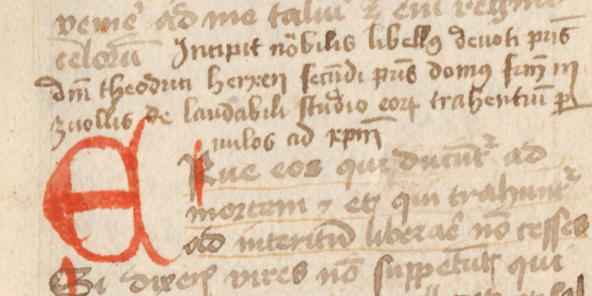 venite ad me talium est enim regnum
celorum Incipit nobilis libellus devoti patris
dni theodrici herxen secundi patris domus frm in
zwollis de laudabili studio eorum trahentium par
vulos ad xpm
Erue eos qui ducuntur ad
mortem et eos qui trahuntur
ad interitum liberare non cesses
Si dixeris vires non suppetunt qui